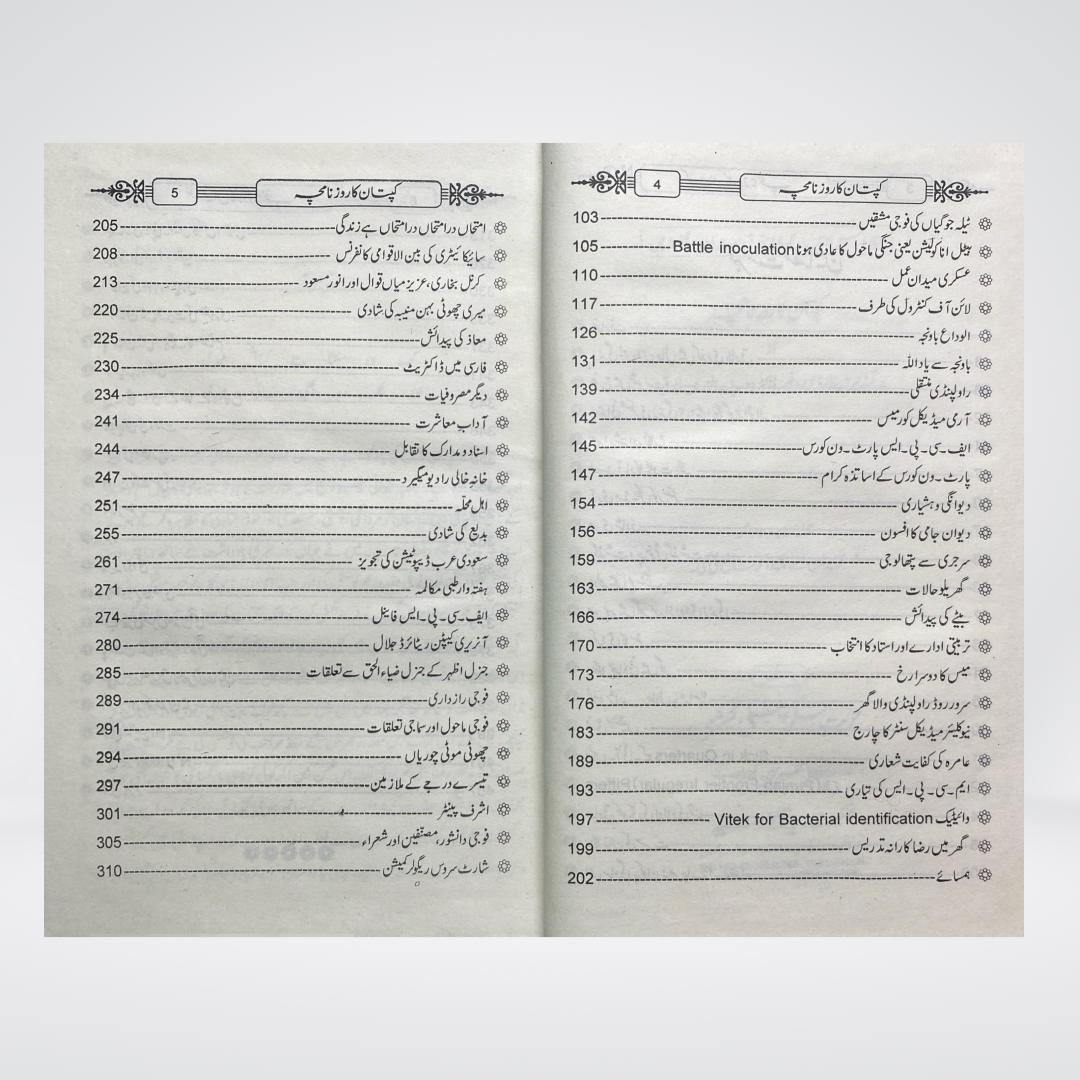 کپتان کا روزنامچہ 4
ٹیلہ جوگیاں کی فوجی مشقیں 103
بیٹل اناکولیشن یعنی جنگی ماحول کا عادی ہونا Battle inoculation 105
عسکری میدانِ عمل 110
لائن آف کنٹرول کی طرف 117
الوداع باونجہ 126
باونجہ سے یاد اللہ 131
راولپنڈی منتقلی 139
آرمی میڈیکل کور میس 142
ایف۔سی۔پی۔ایس پارٹ۔ون کورس 145
پارٹ۔ون کورس کے اساتذہ کرام 147
دیوانگی و ہشیاری 154
دیوان جامی کا افسون 156
سرجری سے پتھالوجی 159
گھریلو حالات 163
بیٹے کی پیدائش 166
تربیتی ادارے اور استاد کا انتخاب 170
میس کا دوسرا رخ 173
سرور روڈ راولپنڈی والا گھر 176
نیوکلیئر میڈیکل سنٹر کا چارج 183
عامرہ کی کفایت شعاری 189
ایم۔سی۔پی۔ایس کی تیاری 193
وائیٹیک Vitek for Bacterial identification 197
گھر میں رضا کارانہ تدریس 199
ہمسائے 202
کپتان کا روزنامچہ 5
امتحاں در امتحاں در امتحاں ہے زندگی 205
سائیکائیٹری کی بین الاقوامی کانفرنس 208
کرنل بخاری، عزیز میاں قوال اور انور مسعود 213
میری چھوٹی بہن منیبہ کی شادی 220
معاذ کی پیدائش 225
فارسی میں ڈاکٹریٹ 230
دیگر مصروفیات 234
آداب معاشرت 241
اسناد و مدارک کا تقابل 244
خانہ خالی را دیو میگیرد 247
اہل محلّہ 251
بدیع کی شادی 255
سعودی عرب ڈیپوٹیشن کی تجویز 261
ہفتہ وار طبی مکالمہ 271
ایف۔سی۔پی۔ایس فائنل 274
آنریری کیپٹن ریٹائرڈ جلال 280
جنرل اظہر کے جنرل ضیاء الحق سے تعلقات 285
فوجی رازداری 289
فوجی ماحول اور سماجی تعلقات 291
چھوٹی موٹی چوریاں 294
تیسرے درجے کے ملازمین 297
اشرف پینٹر 301
فوجی دانشور، مصنّفین اور شعراء 305
شارٹ سروس ریگولر کمیشن 310